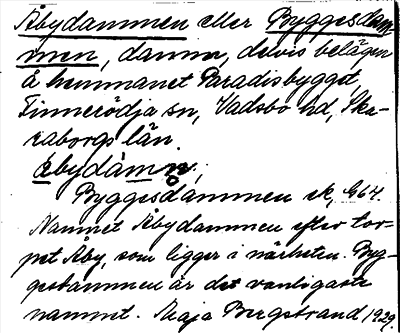 Åbydammen eller Byggesdam-
men, damm, delvis belägen
å hemmanet Paradisbygget,
Finnerödja sn, Vadsbo hd, Ska-
raborgs län.
åbydàmn,
Byggesdammen ek, G64.
Namnet Åbydammen efter tor-
pet Åby, som ligger i närheten. Byg-
gesdammen är det vanligaste
namnet. Maja Bergstrand 1929.